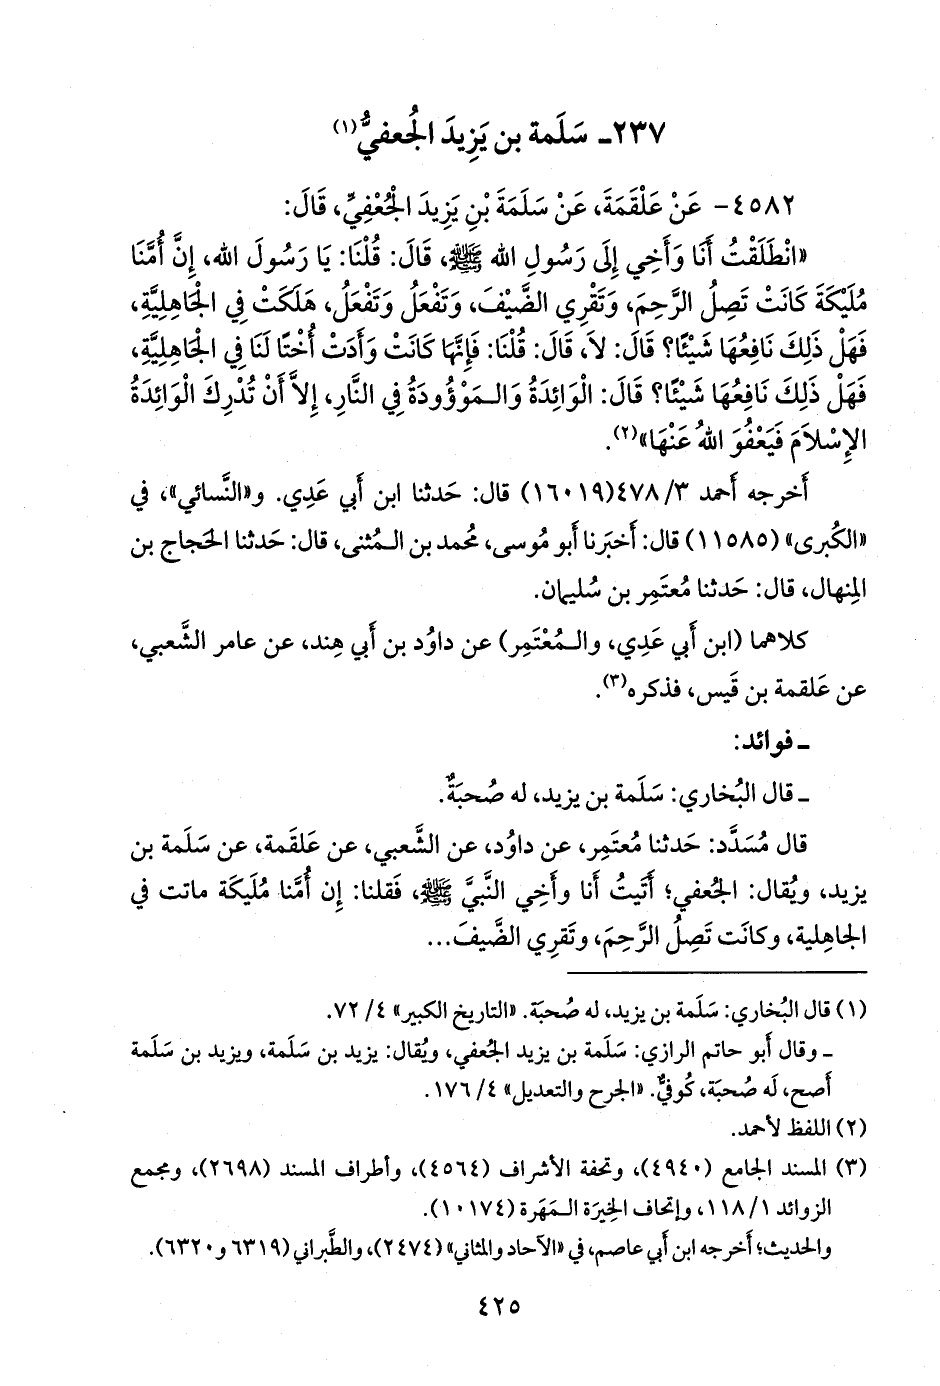 ٢٣٧ـ سَلَمة بن يَزِيدَ الجُعفيُّ(١)
٤٥٨٢- عَنْ عَلْقَمَةَ، عَنْ سَلَمَةَ بْنِ يَزِيدَ الْجُعْفِيِّ، قَالَ:
«انْطَلَقْتُ أَنَا وَأَخِي إِلَى رَسُولِ الله ﷺ، قَالَ: قُلْنَا: يَا رَسُولَ الله، إِنَّ أُمَّنَا
مُلَيْكَةَ كَانَتْ تَصِلُ الرَّحِمَ، وَتَقْرِي الضَّيْفَ، وَتَفْعَلُ وَتَفْعَلُ، هَلَكَتْ فِي الْجَاهِلِيَّةِ،
فَهَلْ ذَلِكَ نَافِعُهَا شَيْئًا؟ قَالَ: لاَ، قَالَ: قُلْنَا: فَإِنَّهَا كَانَتْ وَأَدَتْ أُخْتًا لَنَا فِي الْجَاهِلِيَّةِ،
فَهَلْ ذَلِكَ نَافِعُهَا شَيْئًا؟ قَالَ: الْوَائِدَةُ وَالْـمَوْؤُودَةُ فِي النَّارِ، إِلاَّ أَنْ تُدْرِكَ الْوَائِدَةُ
الإِسْلاَمَ فَيَعْفُوَ اللهُ عَنْهَا»(٢).
أَخرجه أَحمد ٣/ ٤٧٨(١٦٠١٩) قال: حَدثنا ابن أَبي عَدِي. و«النَّسائي»، في
«الكُبرى» (١١٥٨٥) قال: أَخبَرنا أَبو مُوسى، مُحمد بن الـمُثنى، قال: حَدثنا الحَجاج بن
المِنهال، قال: حَدثنا مُعتَمِر بن سُليمان.
كلاهما (ابن أَبي عَدِي، والـمُعْتَمِر) عن داوُد بن أَبي هِند، عن عامر الشَّعبي،
عن عَلقمة بن قَيس، فذكره(٣).
ـ فوائد:
ـ قال البُخاري: سَلَمة بن يزيد، له صُحبَةٌ.
قال مُسَدَّد: حَدثنا مُعتَمِر، عن داوُد، عن الشَّعبي، عن عَلقَمة، عن سَلَمة بن
يزيد، ويُقال: الجُعفي؛ أَتَيتُ أَنا وأَخِي النَّبيَّ ﷺ، فَقلنا: إِن أُمَّنا مُلَيكَة ماتت في
الجاهِلية، وكانَت تَصِلُ الرَّحِمَ، وتَقرِي الضَّيفَ...
(١) قال البُخاري: سَلَمة بن يزيد، له صُحبَة. «التاريخ الكبير» ٤/ ٧٢.
ـ وقال أَبو حاتم الرازي: سَلَمة بن يزيد الجُعفي، ويُقال: يزيد بن سَلَمة، ويزيد بن سَلَمة
أصح، لَه صُحبَة، كُوفيٌّ. «الجرح والتعديل» ٤/ ١٧٦.
(٢) اللفظ لأحمد.
(٣) المسند الجامع (٤٩٤٠)، وتحفة الأشراف (٤٥٦٤)، وأطراف المسند (٢٦٩٨)، ومجمع
الزوائد ١/ ١١٨، وإتحاف الخِيرَة الـمَهَرة (١٠١٧٤).
والحديث؛ أخرجه ابن أبي عاصم، في «الآحاد والمثاني» (٢٤٧٤)، والطَّبراني (٦٣١٩ و٦٣٢٠).
٤٢٥